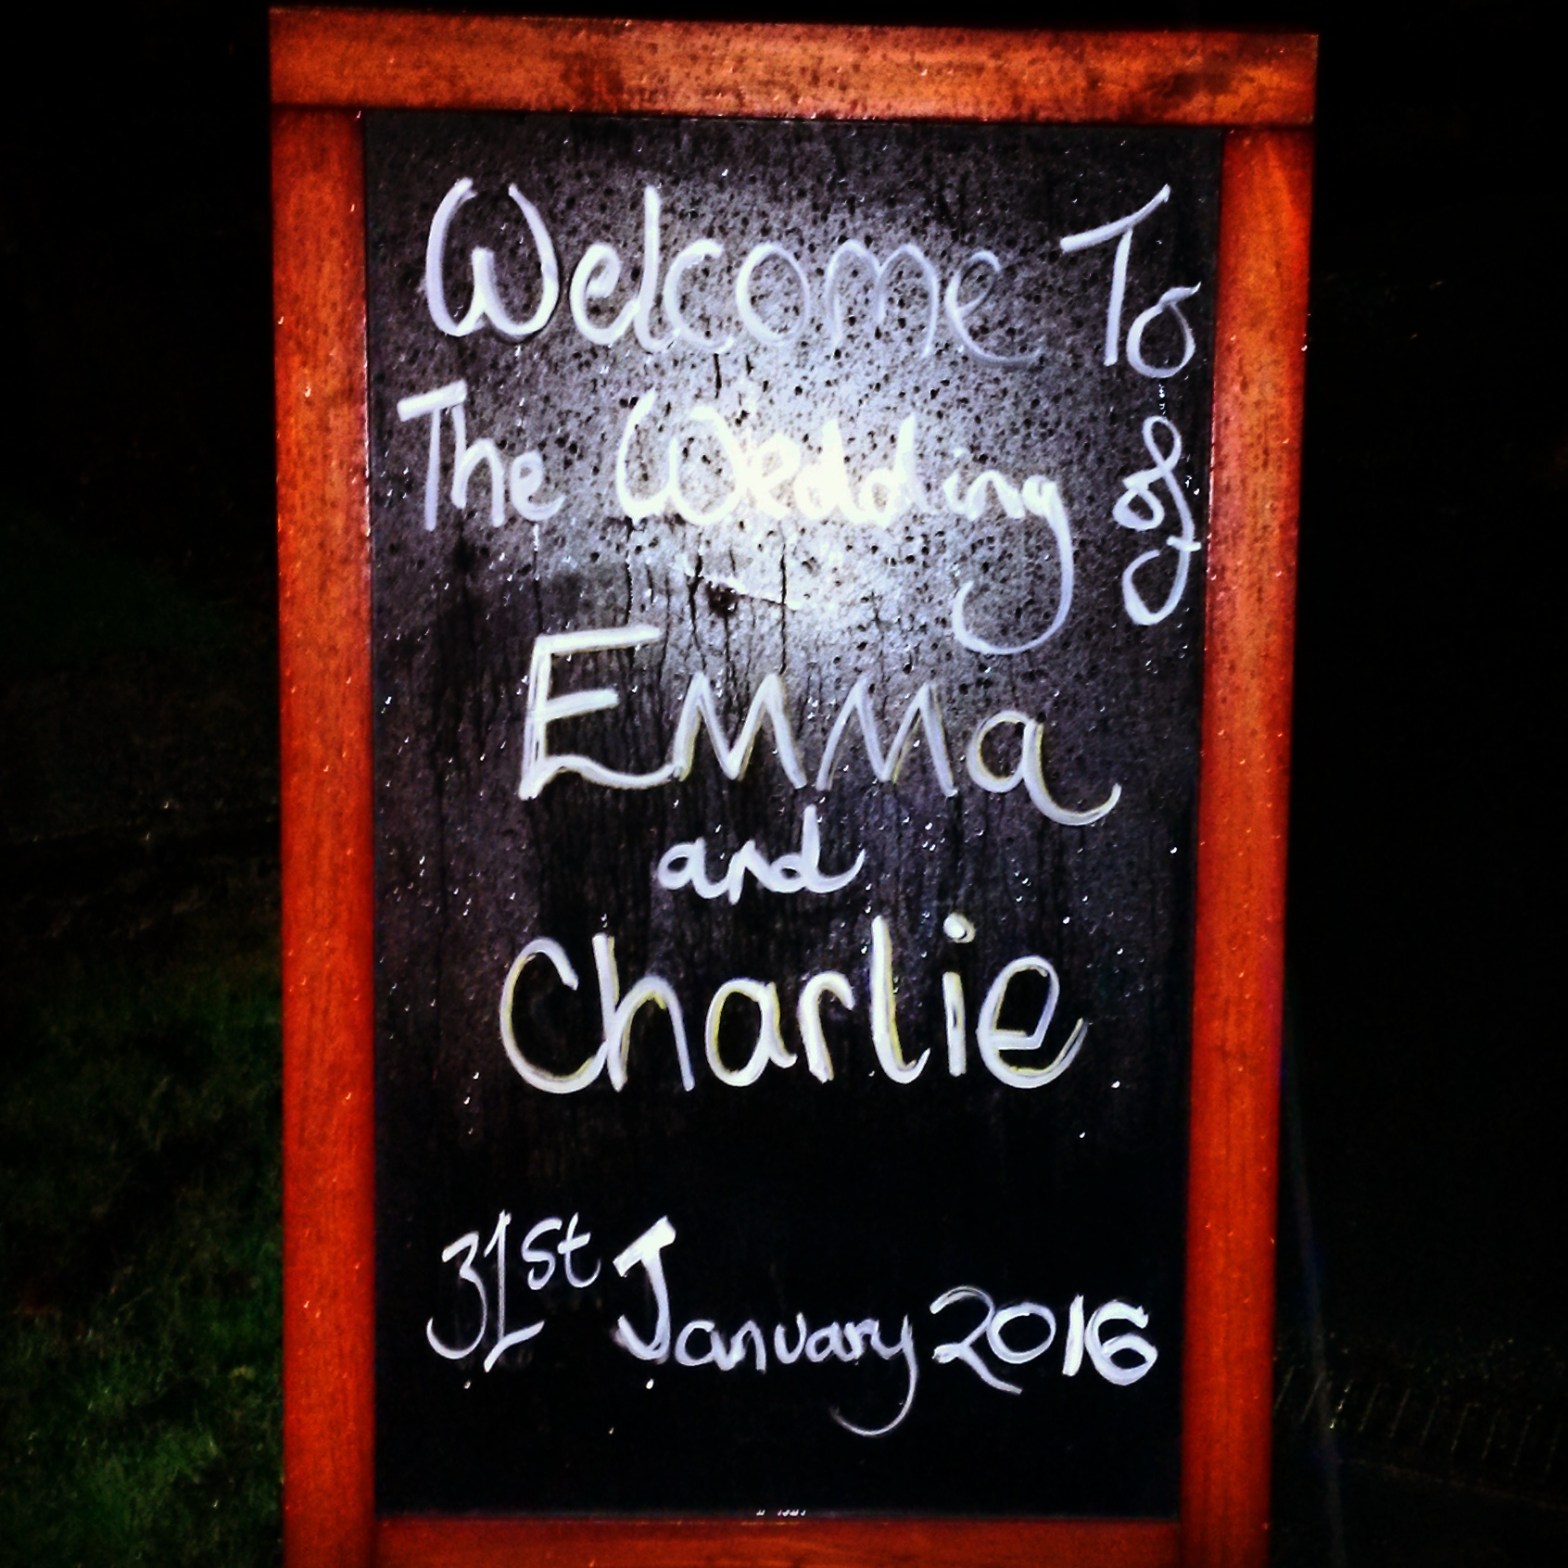 Welcome To
The Wedding of
Emma
and
Charlie
31st January 2016